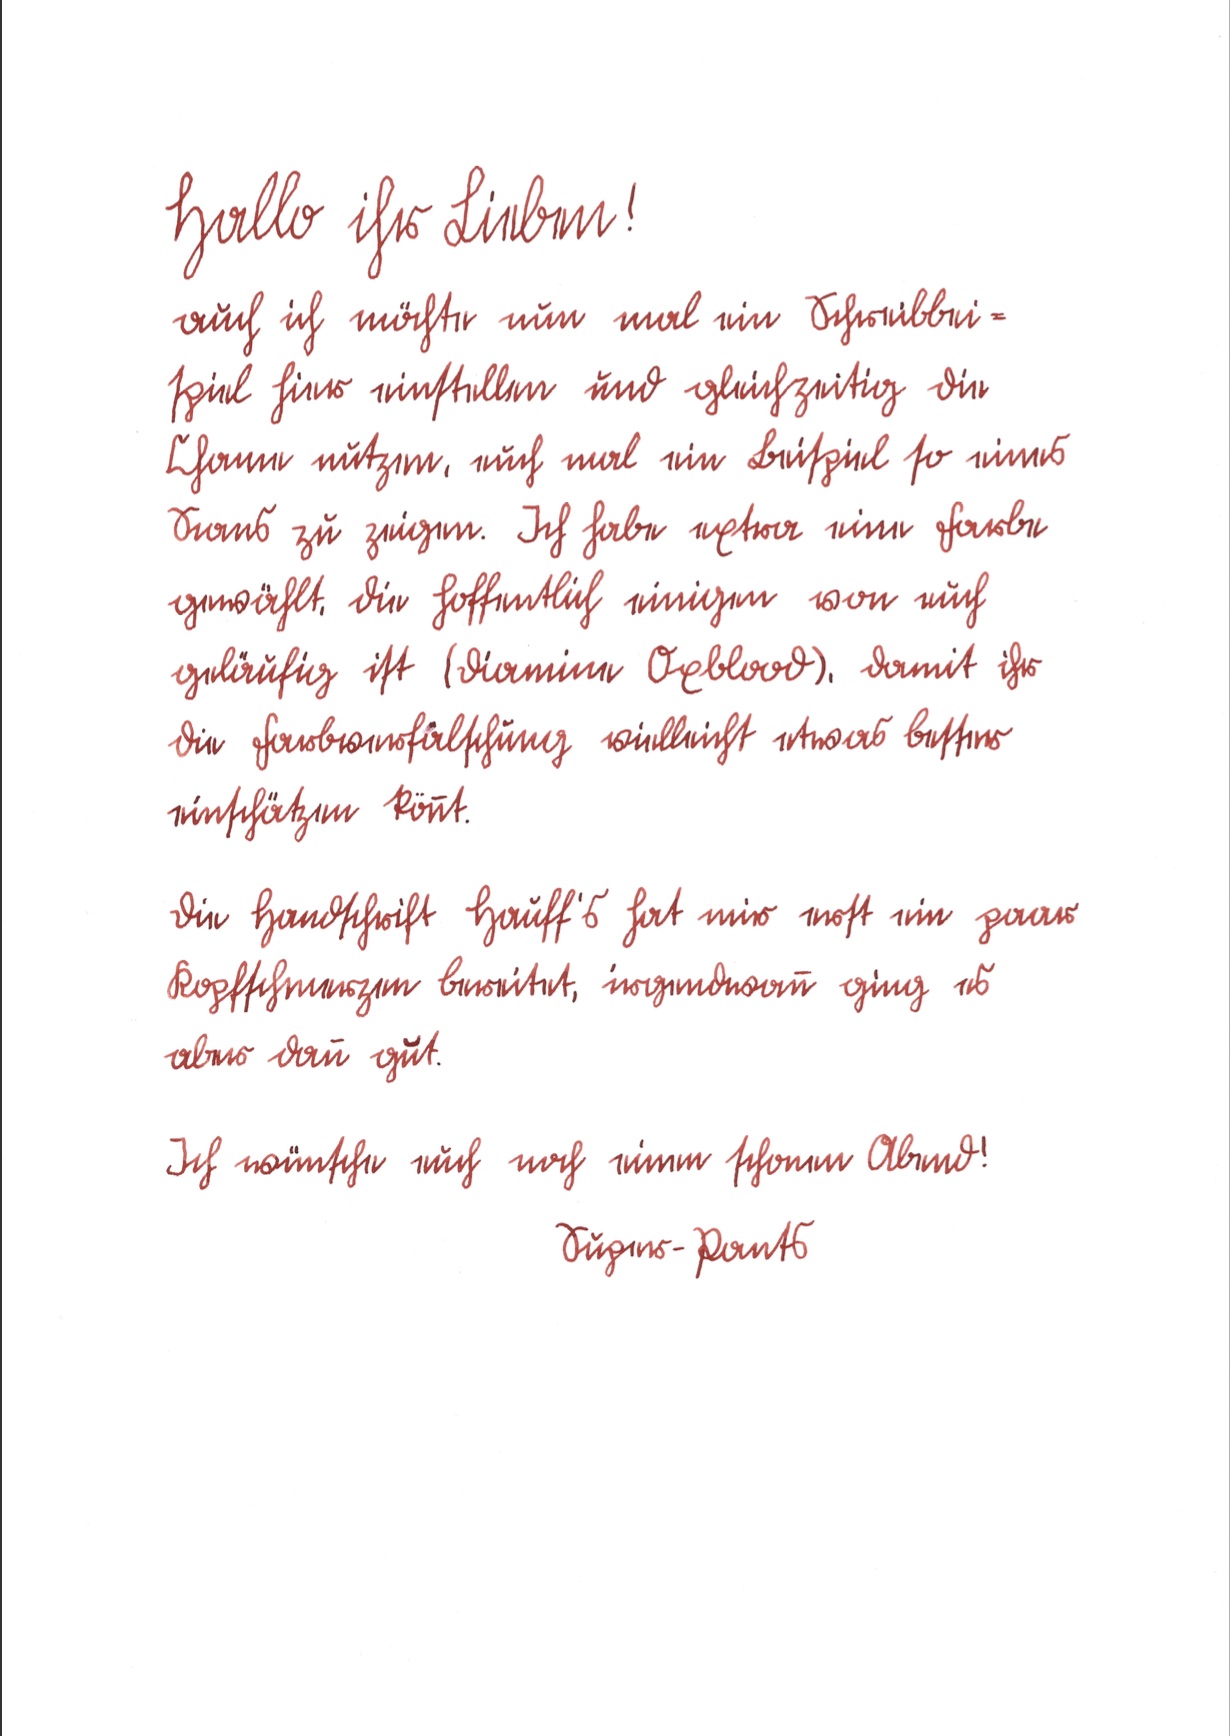 Hallo ihr Lieben!
auch ich möchte nun mal ein Schreibbei=
spiel hier einstellen und gleichzeitig die
Chance nutzen, euch mal ein Beispiel so eines
Scans zu zeigen. Ich habe extra eine Farbe
gewählt, die hoffentlich einigen von euch
geläufig ist (Diamine Oxblood), damit ihr
die Farbverfälschung vielleicht etwas besser
einschätzen kön̄t.
Die Handschrift Hauff's hat mir erst ein paar
Kopfschmerzen bereitet, irgendwan̄ ging es
aber dan̄ gut.
Ich wünsche euch noch einen schonen Abend!
Super-Pants